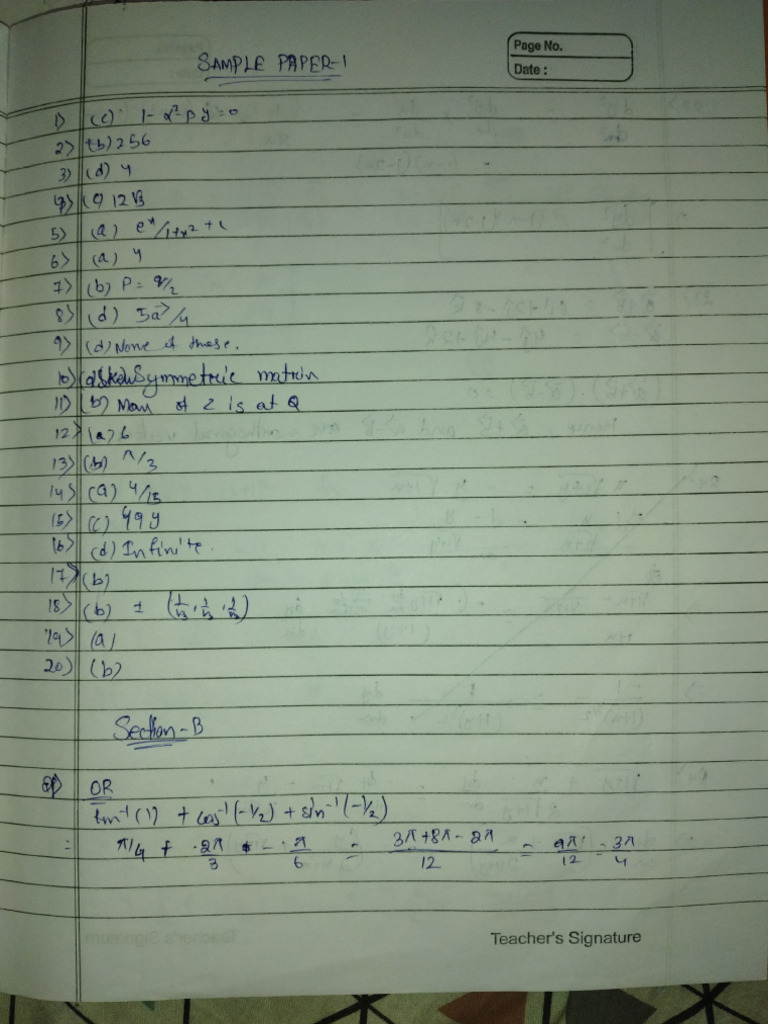 SAMPLE PAPER-1
Page No.
Date :
1) (c) 1-α²-βγ=0
2) (b) 256
3) (d) 4
4) (c) 12√3
5) (a) eˣ/1+x² + c
6) (a) 4
7) (b) P = q/2
8) (d) 5a⃗/4
9) (d) None of these.
10) (d) Skew Symmetric matrix
11) (b) Max of Z is at Q
12) (a) 6
13) (b) π/3
14) (a) 4/13
15) (c) 49y
16) (d) Infinite.
17) (b)
18) (b) ± (1/√3, 1/√3, 1/√3)
19) (a)
20) (b)
Section-B
OR
tan⁻¹(1) + cos⁻¹(-1/2) + sin⁻¹(-1/2)
= π/4 + 2π/3 - π/6 = 3π+8π-2π/12 = 9π/12 = 3π/4
Teacher's Signature